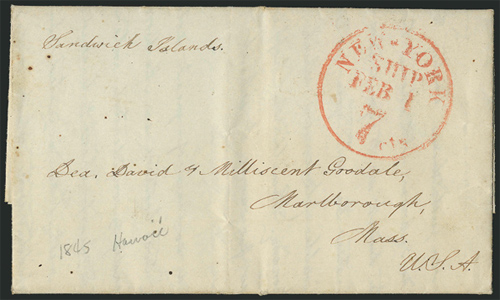 Sandwich Islands.
NEW-YORK
SHIP
FEB 1
7
cts
Dea. David & Milliscent Goodale,
Marlborough,
Mass.
U.S.A.
1845 Hawaii